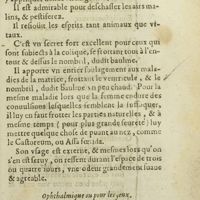 Il est admirable pour deschasser les airs malins, & pestiferez.
Il resiouït les espris tant animaux que vitaux.
C'est vn secret fort excellent pour ceux qui
sont subiects à la colique, se frotant tout à l'entour & dessus le nombril, dudit baulme.
Il apporte vn entier soulagement aux maladies de la matrice, frotant le ventricule, & le
nombril, dudit Baulme vn peu chaud. Pour la
mesme maladie lors que la femme endure des
conuulsions lesquelles semblent la suffoquer,
il luy en faut froter les parties naturelles, & à
mesme temps (pour plus grande seureté) luy
mettre quelque chose de puant au nez, comme
le Castoreum, ou Assa fœtida.
Son vsage est exterie, & mesmes lors qu'on
s'en est seruy, on ressent durant l'espace de trois
ou quatre iours, vne odeur grandement suaue
& agreable.
Ophthalmique ou pour les yeux,